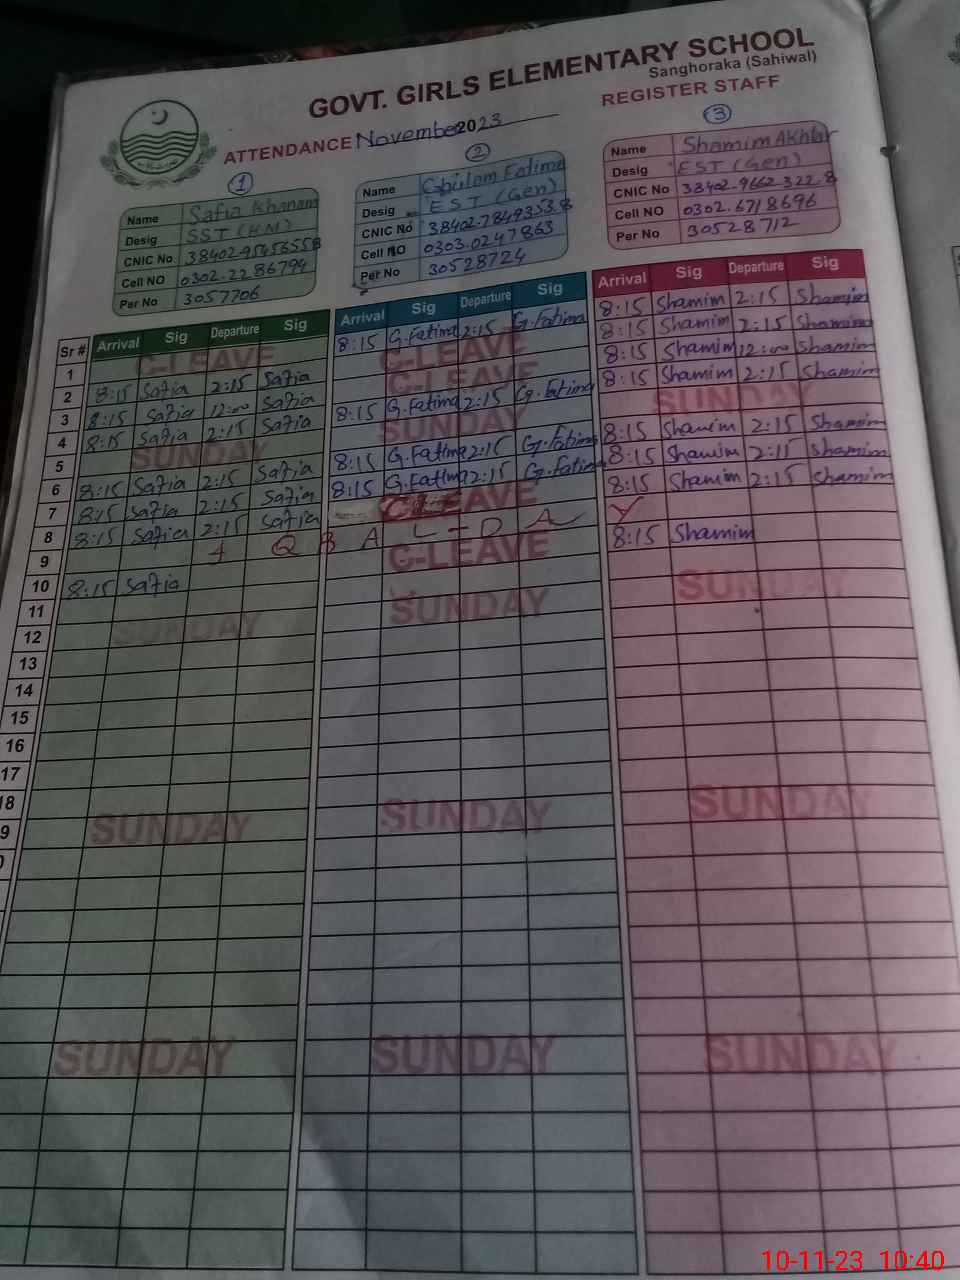 GOVT. GIRLS ELEMENTARY SCHOOL
Sanghoraka (Sahiwal)
ATTENDANCE November 2023 REGISTER STAFF
1 2 3
Name Safia Khanam
Desig SST (H.M)
CNIC No 38402-95456558
Cell NO 0302-2286794
Per No 3057706
Name Ghulam Fatima
Desig EST (Gen)
CNIC No 38402-7849353-8
Cell NO 0303-0247863
Per No 30528724
Name Shamim Akhtar
Desig EST (Gen)
CNIC No 38402-9662322-8
Cell NO 0302-6718696
Per No 30528712
Sr # Arrival Sig Departure Sig Arrival Sig Departure Sig Arrival Sig Departure Sig
1 C-LEAVE 8:15 G.Fatima 2:15 G.Fatima 8:15 Shamim 2:15 Shamim
2 8:15 Safia 2:15 Safia C-LEAVE 8:15 Shamim 2:15 Shamim
3 8:15 Safia 12:00 Safia C-LEAVE 8:15 Shamim 12:00 Shamim
4 8:15 Safia 2:15 Safia 8:15 G.Fatima 2:15 G.Fatima 8:15 Shamim 2:15 Shamim
5 SUNDAY SUNDAY SUNDAY
6 8:15 Safia 2:15 Safia 8:15 G.Fatima 2:15 G.Fatima 8:15 Shamim 2:15 Shamim
7 8:15 Safia 2:15 Safia 8:15 G.Fatima 2:15 G.Fatima 8:15 Shamim 2:15 Shamim
8 8:15 Safia 2:15 Safia C-LEAVE 8:15 Shamim 2:15 Shamim
9 I Q B A L - D A Y
10 8:15 Safia C-LEAVE 8:15 Shamim
11
12 SUNDAY SUNDAY SUNDAY
13
14
15
16
17
18
9 SUNDAY SUNDAY SUNDAY
SUNDAY SUNDAY SUNDAY
10-11-23 10:40